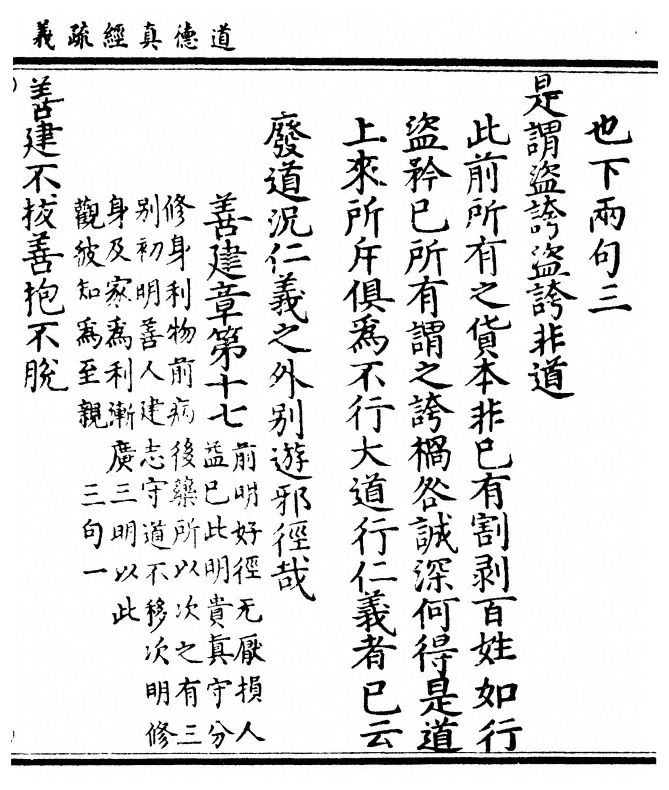 道德真經疏義
也下兩句三
是謂盜誇盜誇非道
此前所有之貨本非已有割剥百姓如行
盜矜已所有謂之誇禍咎誠深何得是道
上來所斥俱爲不行大道行仁義者已云
廢道況仁義之外别遊邪徑哉
善建章第十七
前明好徑无厭損人
益已此明貴真守分
修身利物前病後藥所以次之有三
别初明善人建志守道不移次明修
身及家爲利漸廣三明以此
觀彼知爲至親
三句一
善建不拔善抱不脫